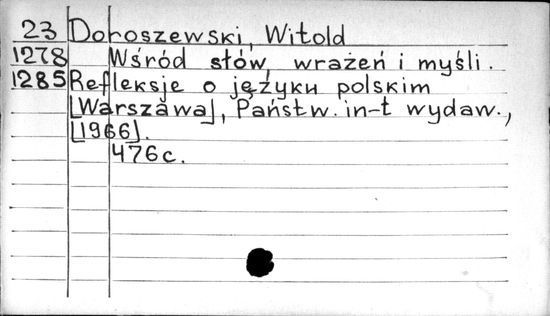 23 Doroszewski, Witold
1278 Wśród słów, wrażeń i myśli.
1285 Refleksje o języku polskim
[Warszawa], Państw. in-t wydaw.,
[1966].
476c.